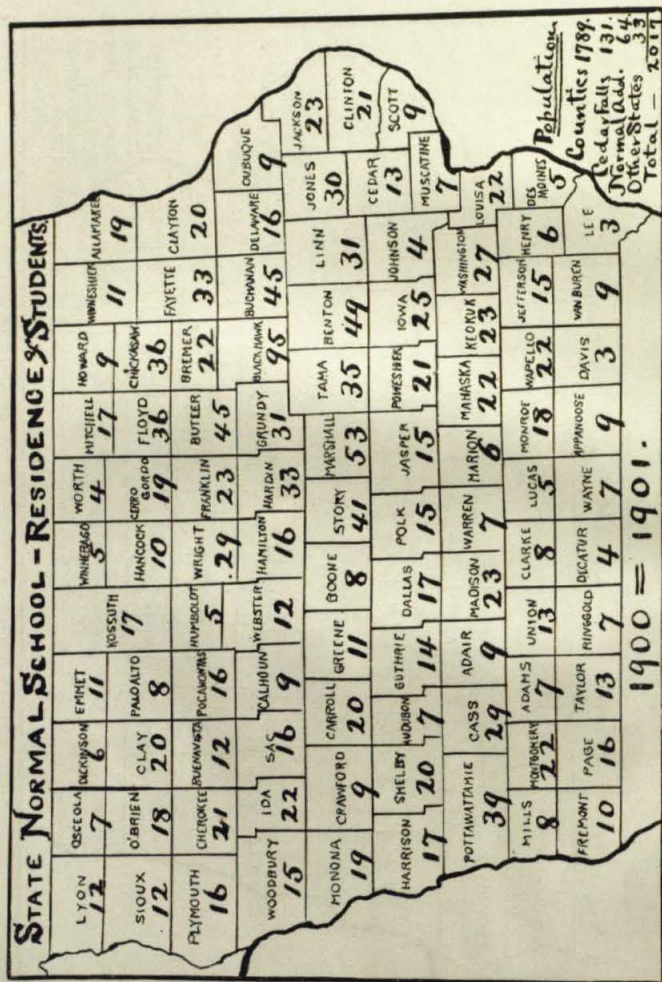 STATE NORMAL SCHOOL - RESIDENCE of STUDENTS.
LYON
12
OSCEOLA
7
DICKINSON
6
EMMET
11
KOSSUTH
17
WINNEBAGO
5
WORTH
4
MITCHELL
17
HOWARD
9
WINNESHIEK
11
ALLAMAKEE
19
SIOUX
12
O'BRIEN
18
CLAY
20
PALO ALTO
8
HANCOCK
10
CERRO
GORDO
19
FLOYD
36
CHICKASAW
36
FAYETTE
33
CLAYTON
20
PLYMOUTH
16
CHEROKEE
21
BUENA VISTA
12
POCAHONTAS
16
HUMBOLDT
5
WRIGHT
29
FRANKLIN
23
BUTLER
45
BREMER
22
WOODBURY
15
IDA
22
SAC
16
CALHOUN
9
WEBSTER
12
HAMILTON
16
HARDIN
33
GRUNDY
31
BLACKHAWK
95
BUCHANAN
45
DELAWARE
16
DUBUQUE
9
MONONA
19
CRAWFORD
9
CARROLL
20
GREENE
11
BOONE
8
STORY
41
MARSHALL
53
TAMA
35
BENTON
49
LINN
31
JONES
30
JACKSON
23
CLINTON
21
CEDAR
13
SCOTT
9
HARRISON
17
SHELBY
20
AUDUBON
7
GUTHRIE
14
DALLAS
17
POLK
15
JASPER
15
POWESHIEK
21
IOWA
25
JOHNSON
4
MUSCATINE
7
POTTAWATTAMIE
39
CASS
29
ADAIR
9
MADISON
23
WARREN
7
MARION
6
MAHASKA
22
KEOKUK
23
WASHINGTON
27
LOUISA
22
MILLS
8
MONTGOMERY
22
ADAMS
7
UNION
13
CLARKE
8
LUCAS
5
MONROE
18
WAPELLO
22
JEFFERSON
15
HENRY
6
DES
MOINES
5
FREMONT
10
PAGE
16
TAYLOR
13
RINGGOLD
7
DECATUR
4
WAYNE
7
APPANOOSE
9
DAVIS
3
VAN BUREN
9
LEE
3
Population
Counties 1789.
Cedar Falls 131.
Normal Add. 64.
Other States 33
Total — 2017
1900 = 1901.